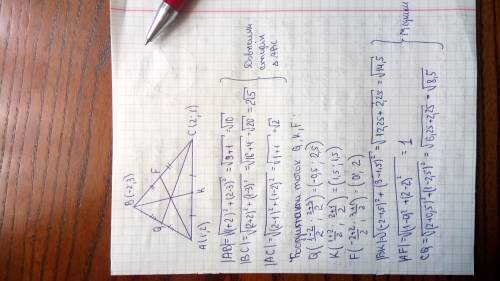 B(-2;3)
F
C(2;1)
Q
K
A(1;2)
|AB|=√(1+2)²+(2-3)²=√9+1=√10
|BC|=√(2+2)²+(1-3)²=√16+4=√20=2√5
|AC|=√(2-1)²+(1-2)²=√1+1=√2
Довжини
сторін
△ABC
Координати точок Q, K, F
Q(1-2/2; 2+3/2)=(-0,5; 2,5)
K(1+2/2; 2+1/2)=(1,5; 1,5)
F(-2+2/2; 3+1/2)=(0; 2)
|BK|=√(-2-1,5)²+(3-1,5)²=√12,25+2,25=√14,5
|AF|=√(1-0)²+(2-2)²=1
CQ=√(2+0,5)²+(1-2,5)²=√6,25+2,25=√8,5
Медіани